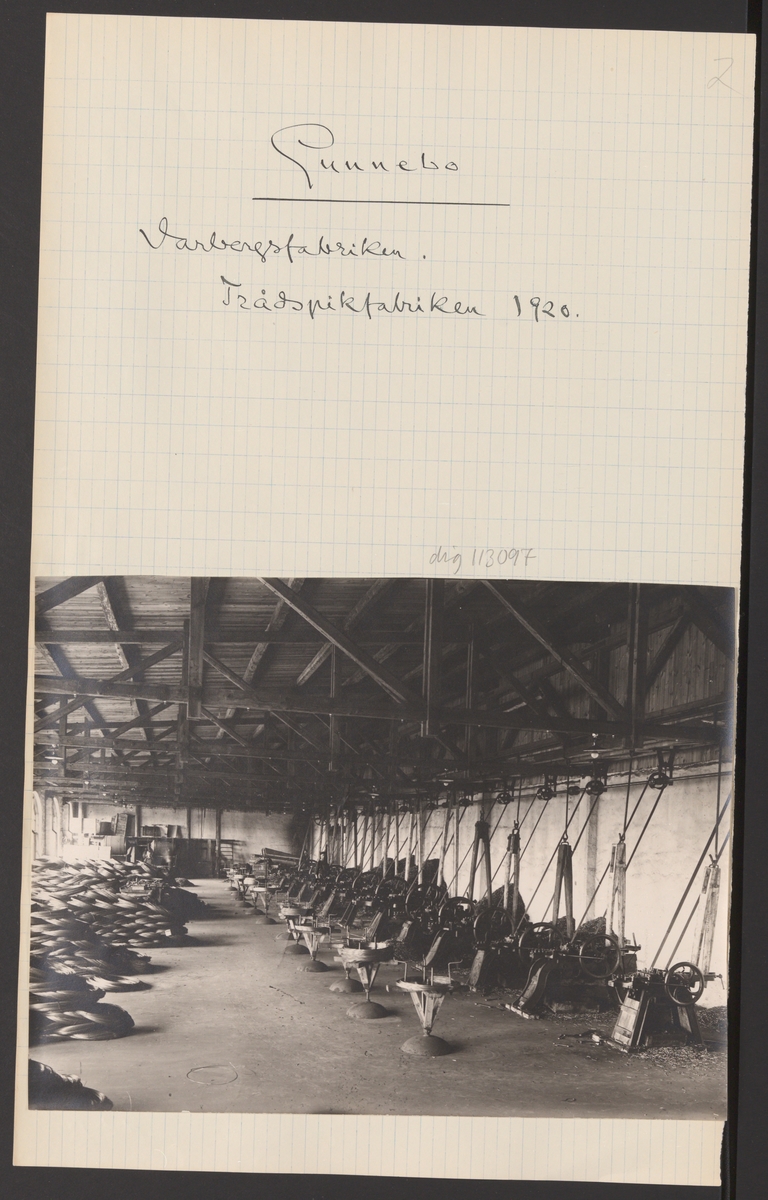 2
Gunnebo
Varbergsfabriken.
Trådspikfabriken 1920.
dig 113097